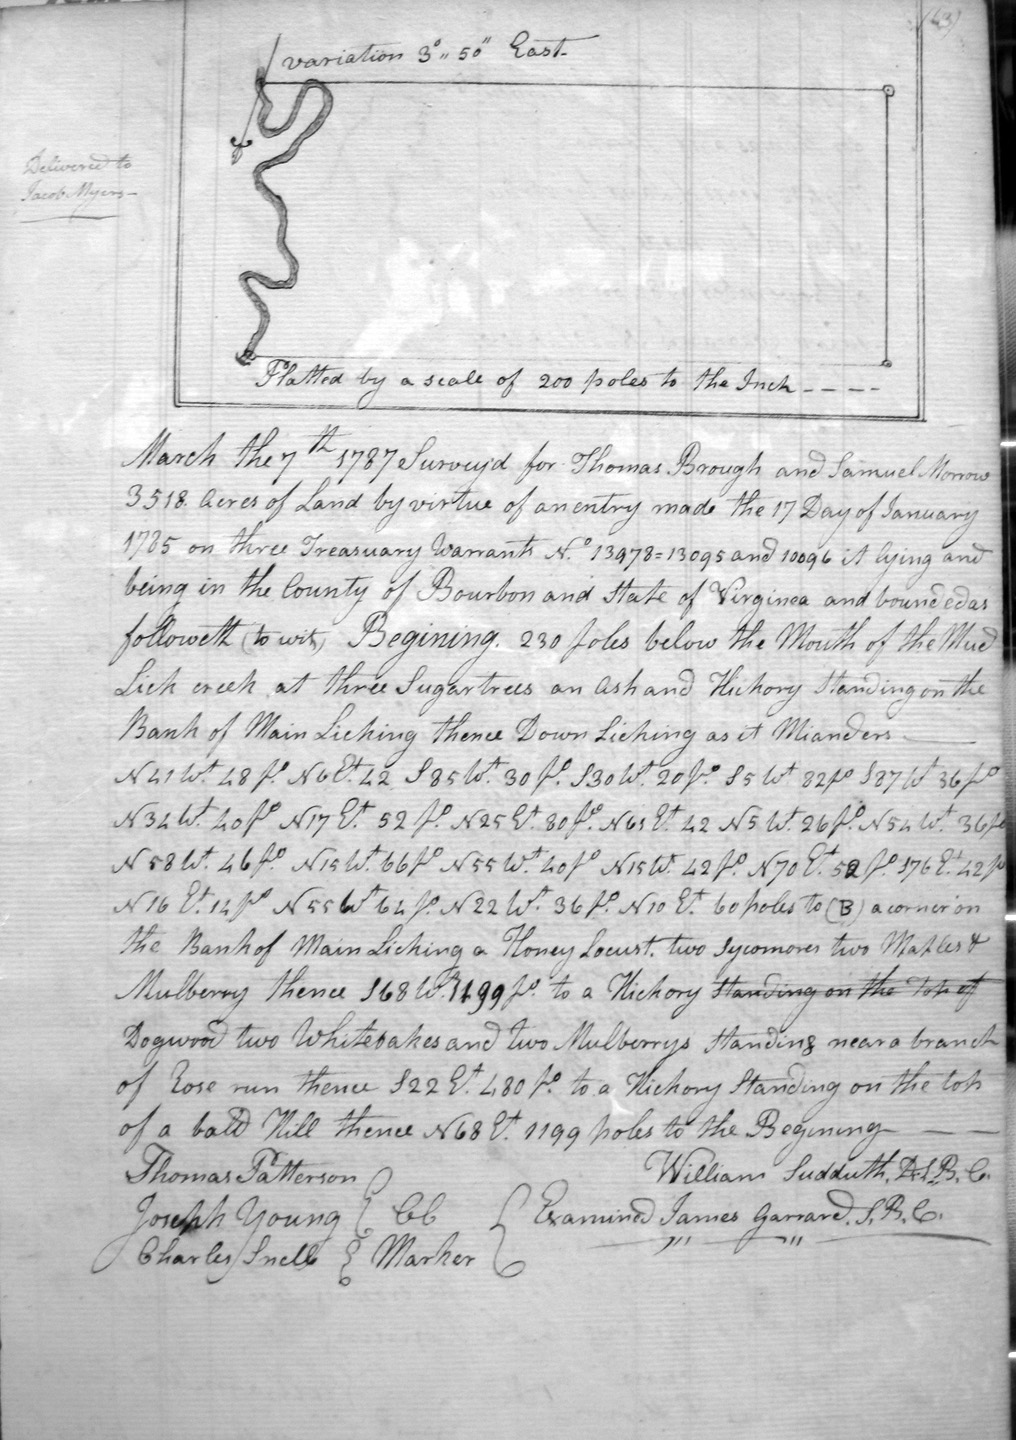 (63)
variation 3°,, 50" East.
Delivered to
Jacob Myers
Platted by a scale of 200 poles to the Inch ----
March the 7th 1787 Survey'd for Thomas Brough and Samuel Morrow
3518 Acres of Land by virtue of an entry made the 17 Day of January
1785 on three Treasuary Warrants No. 13978=13095 and 10096 it lying and
being in the County of Bourbon and State of Virginea and bounded as
followeth (to wit) Begining. 230 poles below the Mouth of the Mud
Lick creek at three Sugartrees an Ash and Hickory Standing on the
Bank of Main Licking thence Down Licking as it Mianders
N41Wt. 48 po. N6Et. 42 S85Wt. 30 po. S30Wt. 20po. S5Wt 82po S87Wt 36po
N34Wt. 40po N17Et. 52 po. N25Et. 80po. N65Et. 42 N5Wt. 26po. N54Wt. 36po
N58Wt. 46po. N15Wt. 66po N55Wt. 40po N15W. 42 po. N70Et. 52 po. S76Et. 42po
N16Et. 14po N55Wt 64 po. N22Wt. 36 po. N10Et. 60 poles to (B) a corner on
the Bank of Main Licking a Honey Locust. two Sycomores two Maples &
Mulberry thence S68Wt. 1199 po. to a Hickory Standing on the Top of
Dogwood two Whiteoakes and two Mulberrys Standing near a branch
of Rose run thence S22Et. 480 po. to a Hickory Standing on the top
of a bald Hill thence N68Et. 1199 poles to the Begining
Thomas Patterson William Sudduth, D.S.B.C.
Joseph Young } CC { Examined James Garrard. S.B.C.
Charles Snell } Marker